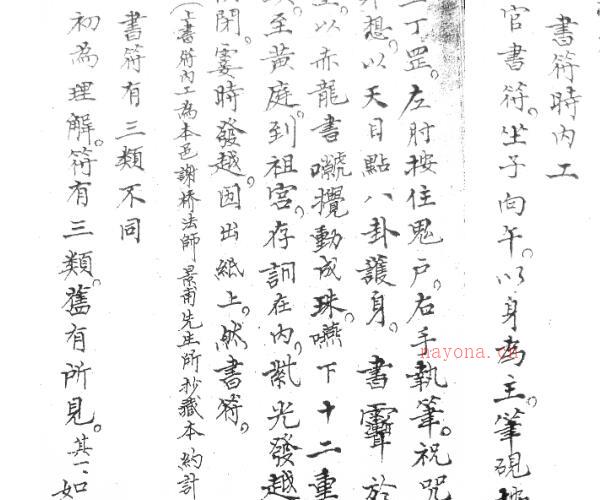 書符時內工
官書符。坐子向午。以身為主。筆硯
丁罡。左肘按住鬼戶。右手執筆。祝咒
想。以天目點八卦護身。書於
以赤龍書攪動成珠。嚥下十二重
至黃庭。到祖宮。存訶在內。紫光發越
閉。霎時發越。囪出紙上。然書符。
上書符內工為本邑謝橋法師景甫先生所抄藏本約計
書符有三類不同
初為理解。符有三類。舊有所見。其一、如
nayona.cn